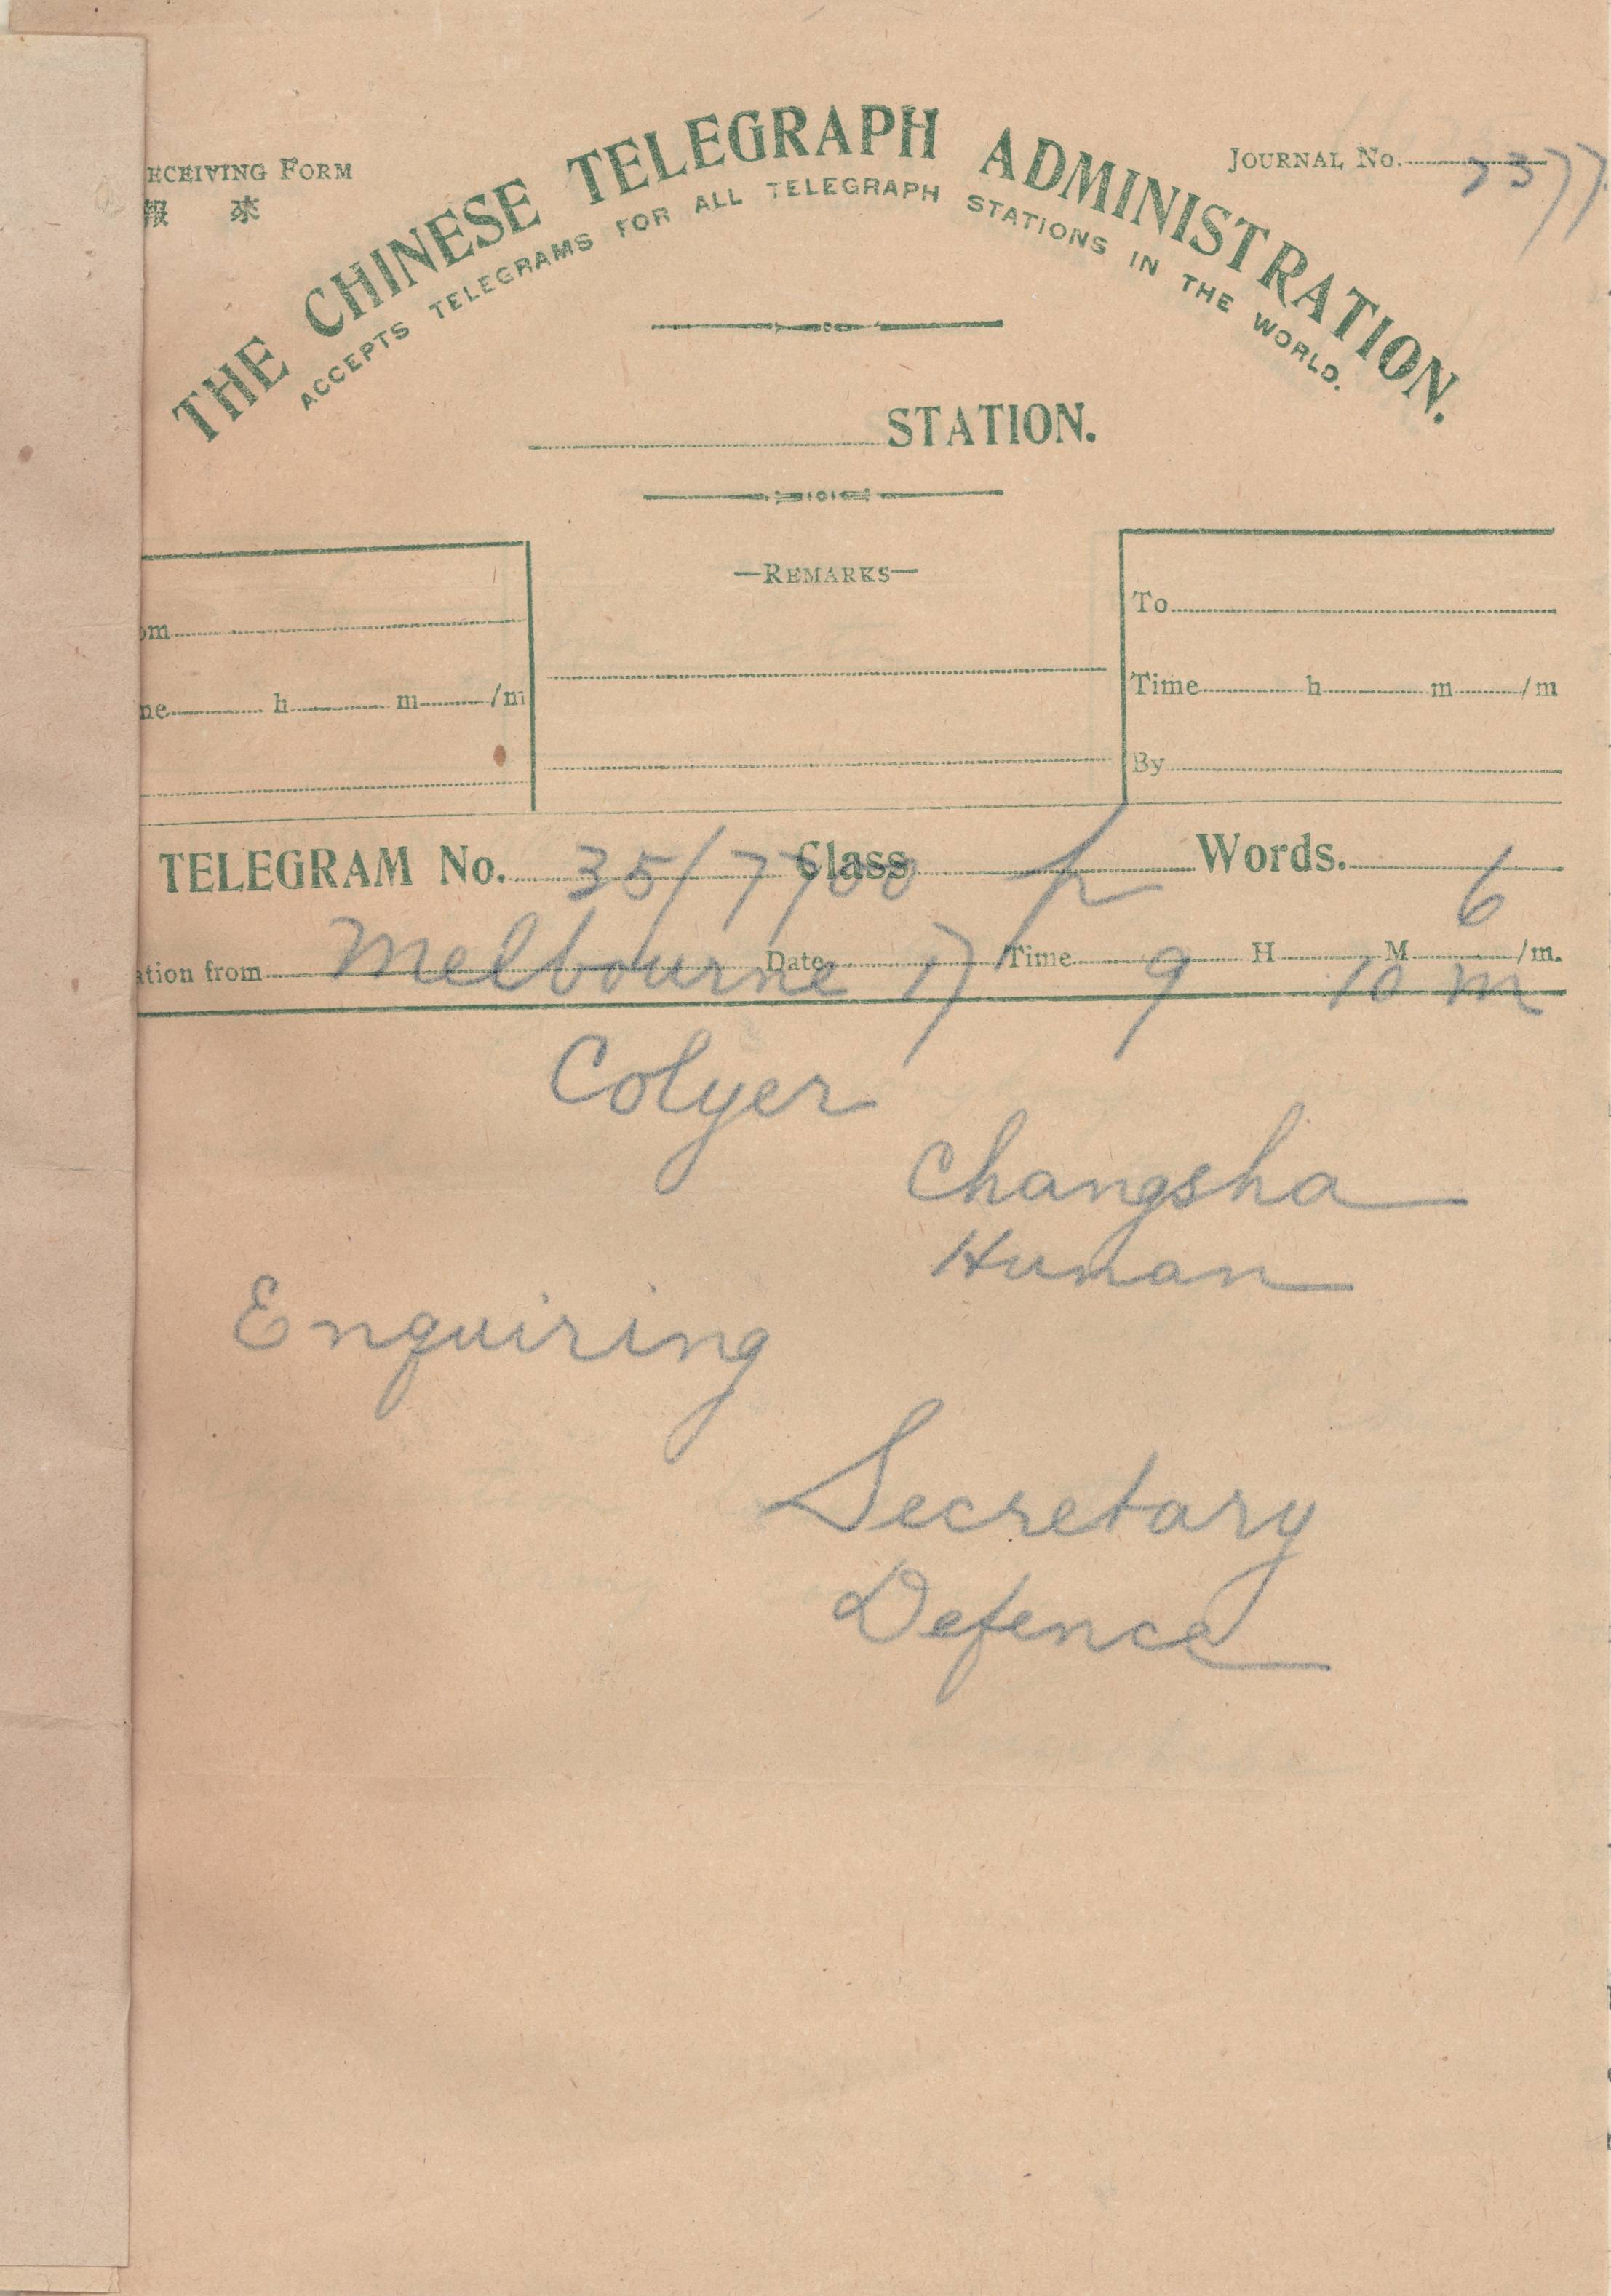 ECEIVING FORM
報 來
JOURNAL No. 3377
THE CHINESE TELEGRAPH ADMINISTRATION.
ACCEPTS TELEGRAMS FOR ALL TELEGRAPH STATIONS IN THE WORLD.
STATION.
—REMARKS—
om
ne h m /m
To
Time h m /m
By
TELEGRAM No. 35/7700 Class p Words. 6
ation from Melbourne Date 17 Time 9 H 10 M m /m.
Colyer
Changsha
Human
Enquiring
Secretary
Defence